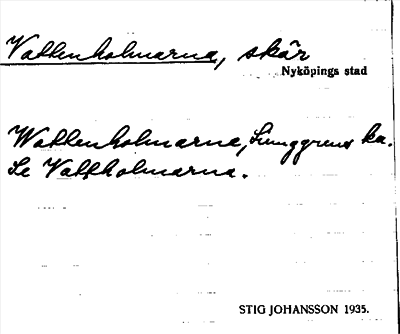 Vattenholmarna, skär
Nyköpings stad
Wattenholmarne, Ljunggrens ka.
Se Valfholmarna.
STIG JOHANSSON 1935.